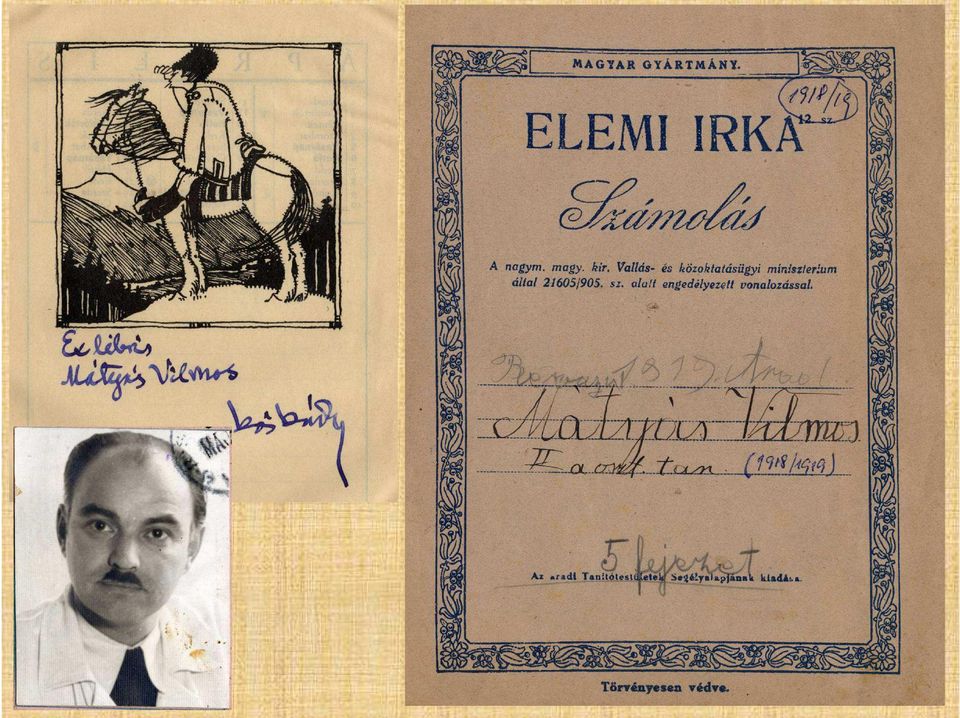 Ex libris
Mátyás Vilmos
MAGYAR GYÁRTMÁNY.
1918/19
12. sz.
ELEMI IRKA
Számolás
A nagym. magy. kir. Vallás- és közoktatásügyi miniszterium
által 21605/905. sz. alatt engedélyezett vonalozással.
1919. Arad
Mátyás Vilmos
II a oszt. tan (1918/1919)
5 fejezet
Az aradi Tanitótestületek Segélyalapjának kiadása.
Törvényesen védve.
MA